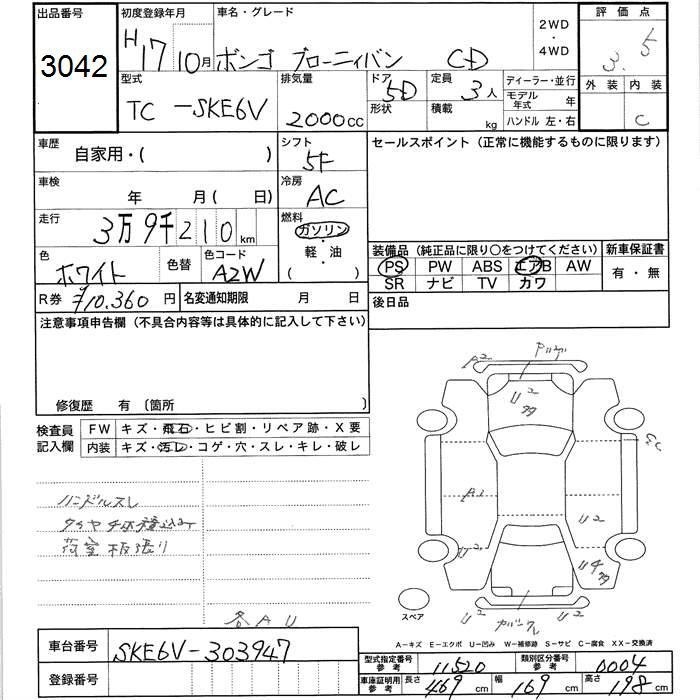 出品番号
3042
初度登録年月
H17 10月
車名・グレード
ボンゴ ブローニィバン CD
2WD
・
4WD
評価点
3.5
外装 内装
C
型式
TC-SKE6V
排気量
2000cc
ドア
5D
形状
定員
3人
積載
kg
ディーラー・並行
モデル年式 年
ハンドル 左・右
車歴
自家用・( )
シフト
5F
セールスポイント（正常に機能するものに限ります）
車検
年 月( 日)
冷房
AC
走行
3万9千210km
燃料
ガソリン
・
軽・油
( )
色
ホワイト
色替
色コード
A2W
装備品（純正品に限り〇をつけてください）
新車保証書
PS PW ABS エアB AW
有・無
SR ナビ TV カワ
R券 ¥10,360円
名変通知期限 月 日
後日品
注意事項申告欄（不具合内容等は具体的に記入して下さい）
修復歴 有〔箇所 〕
検査員
記入欄
FW キズ・飛石・ヒビ割・リペア跡・X要
内装 キズ・汚レ・コゲ・穴・スレ・キレ・破レ
ハンドルスレ
荷室板張り
各AU
A2
U2
A1
U2
U2
U2
U2
スペア
A－キズ E－エクボ U－凹み W－補修跡 S－サビ C－腐食 XX－交換済
車台番号
SKE6V-303947
登録番号
型式指定番号
参考
11520
類別区分番号
参考
0004
車庫証明用
参考
長さ 469cm
幅 169cm
高さ 198cm